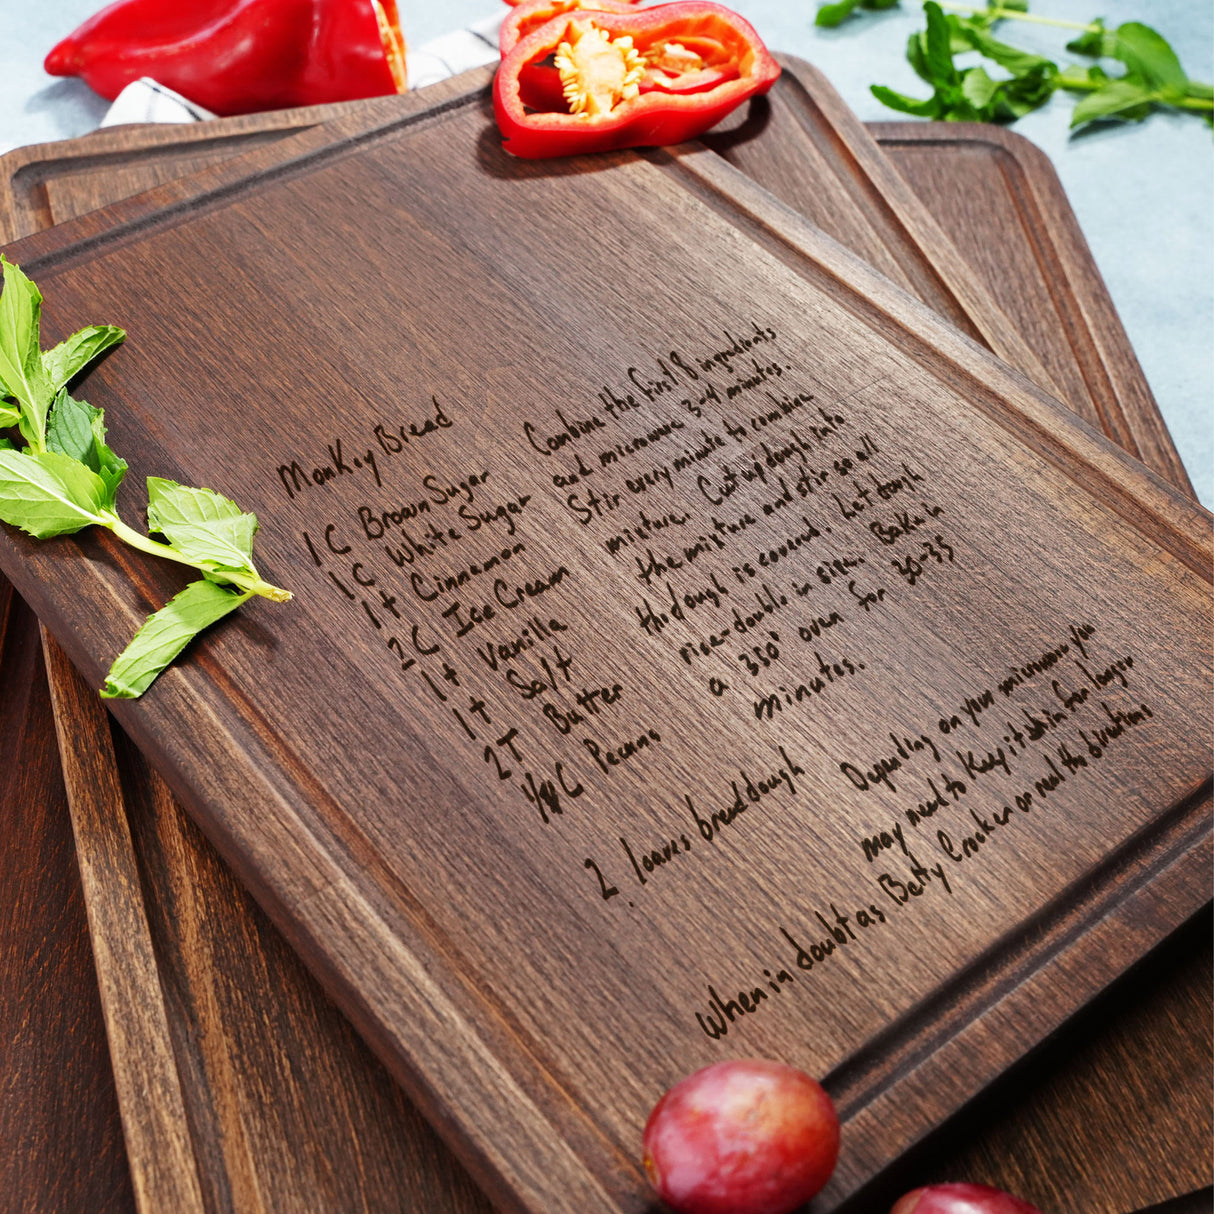 Monkey Bread
1 C Brown Sugar
1 C White Sugar
1 t Cinnamon
2 C Ice Cream
1 t Vanilla
1 t Salt
2 T Butter
C Pecans
2 loaves bread dough
Combine the first 8 ingredients
and microwave 3-4 minutes.
Stir every minute to combine
mixture. Cut up dough into
the mixture and stir so all
the dough is covered. Let dough
rise-double in size. Bake in
a 350° oven for 30-35
minutes.
Depending on your microwave you
may need to Keep it in for longer
When in doubt as Betty Crocker or read the directions